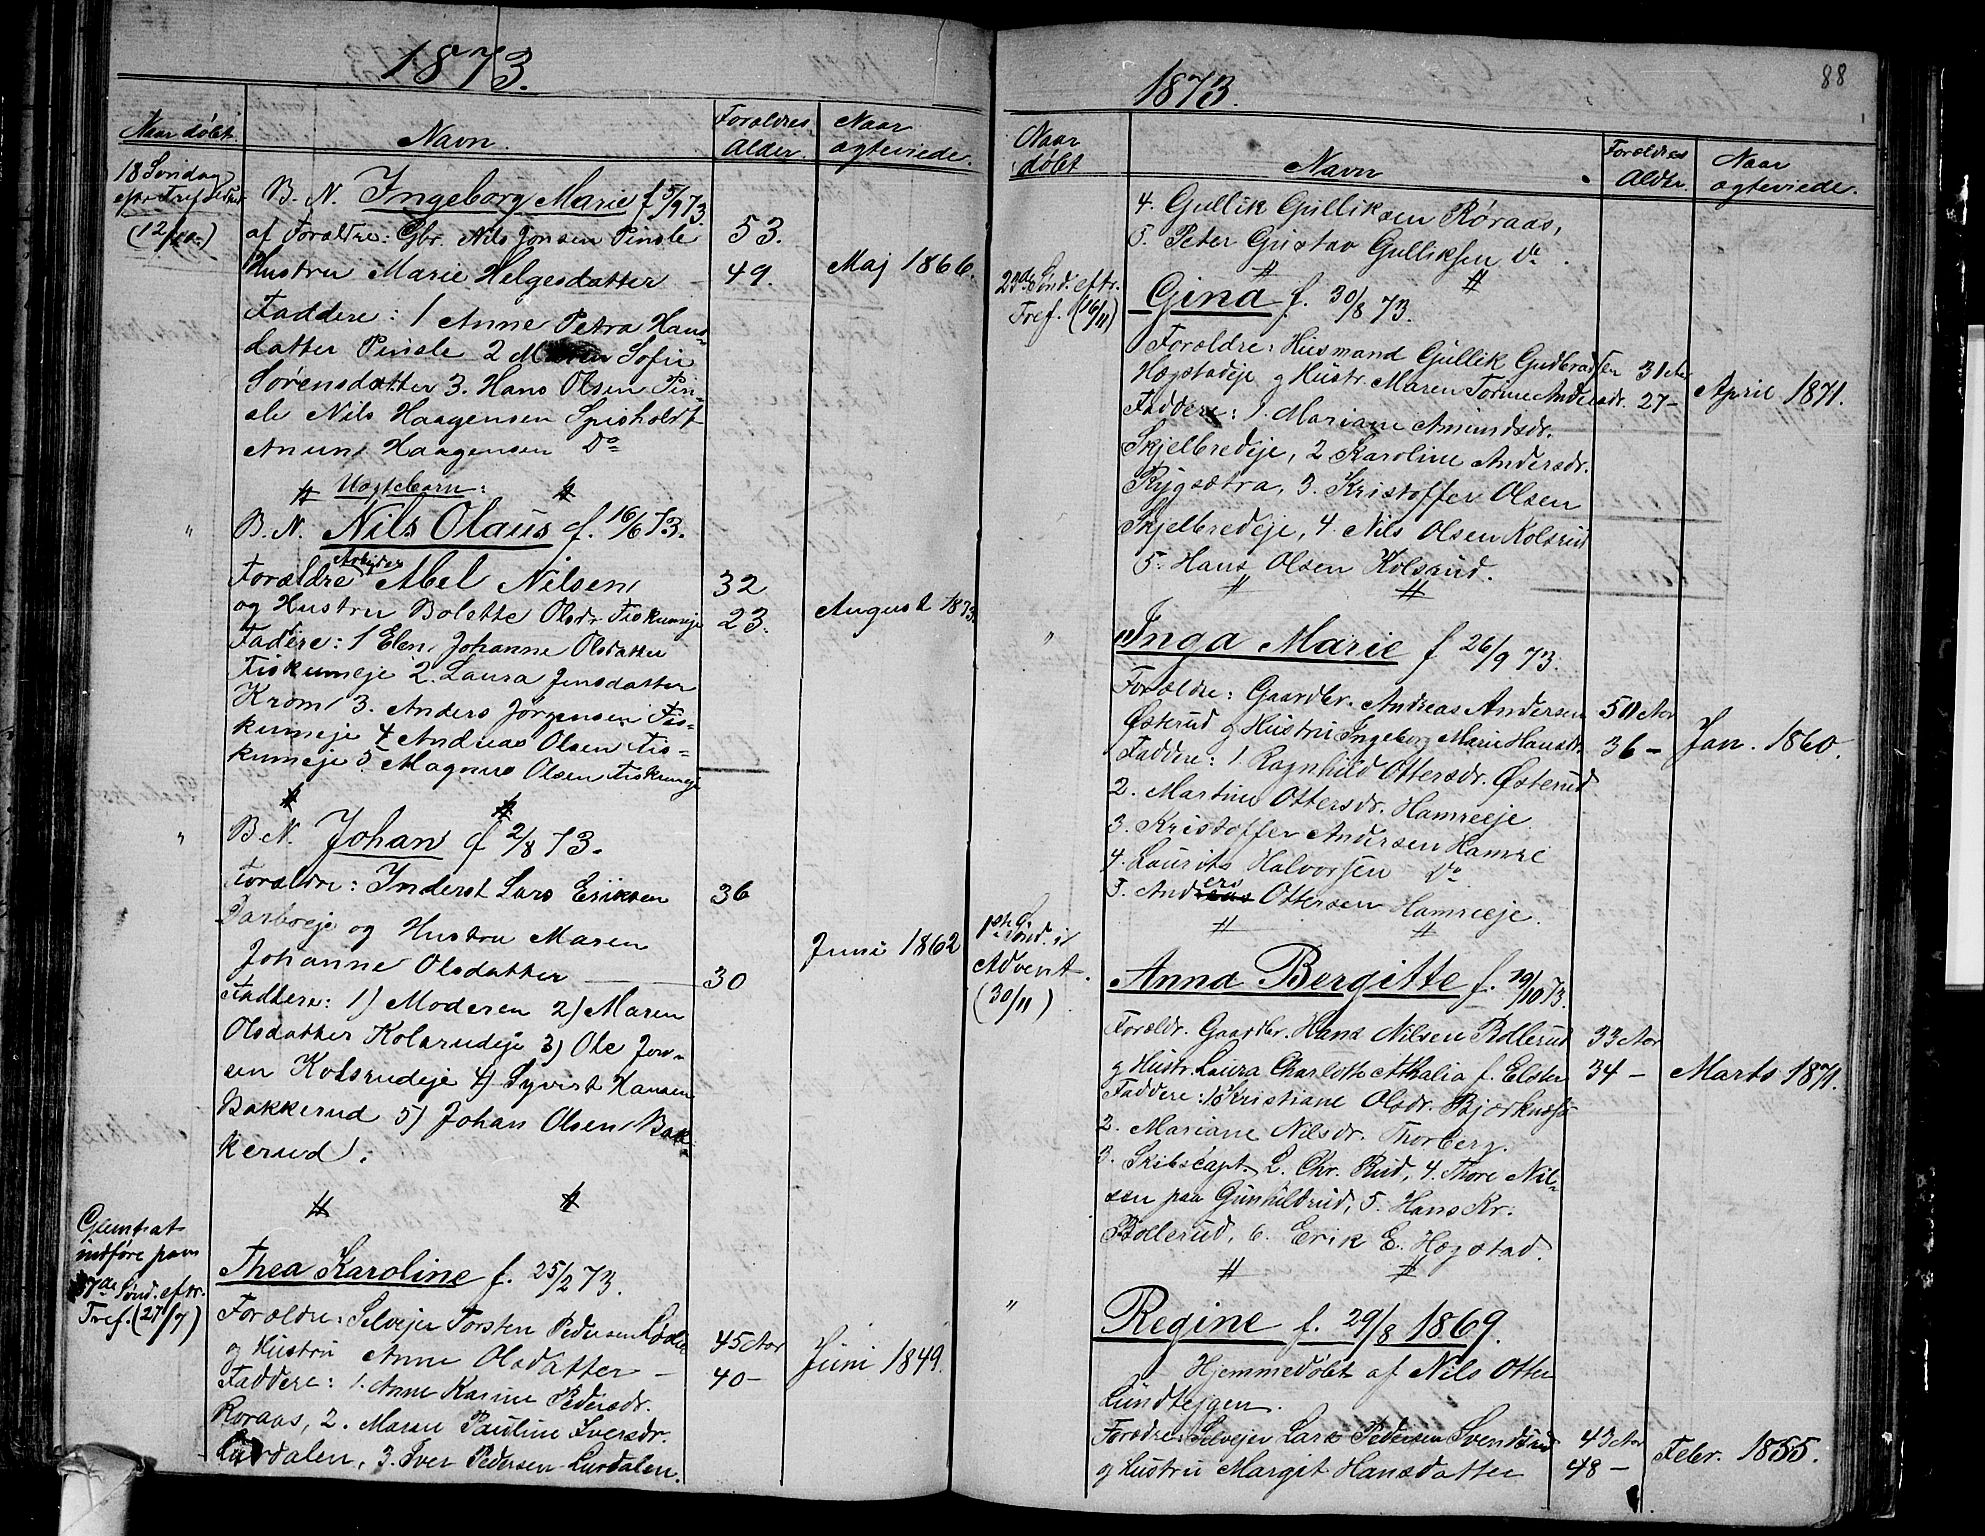 1873.
Naar døbt. Navn. Forældres Alder. Naar ægteviede.
18 Søndag
eftr Tref.
(12/10)
B. N. Ingeborg Marie f 5/9 73.
af Forældre: Gbr. Nils Jonsen Pinsle 53.
Hustru Marie Helgesdatter 49. Maj 1866.
Faddere: 1 Anne Petra Hans-
datter Pinsle 2 Maren Sofie
Sørensdatter 3. Hans Olsen Pin-
sle Nils Haagensen Spisholdt
Anun Haagensen Do
Uægtebarn:
" B. N. Nils Olaus f. 16/6 73.
Forældre Arbejder Abel Nilsen 32
og Hustru Bolette Olsdr. Fiskumeje 23. August 1873.
Faddere: 1 Elen Johanne Olsdatter
Fiskumeje 2. Laura Jensdatter
Krom 3. Anders Jørgensen Fis-
kumeje 4 Andreas Olsen Fis-
kumeje 5. Magnus Olsen Fiskumeje
" B.N. Johan f 2/8 73.
Forældre: Inderst Lars Eriksen 36
Darboeje og Hustru Maren
Johanne Olsdatter 30 Juni 1862
Faddere: 1) Moderen 2) Maren
Olsdatter Kolsrudeje 3) Ole Jen-
sen Kolsrudeje 4) Syvert Hansen
Bakkerud 5) Johan Olsen Bak-
kerud.
Glemt at
indføre paa
7de Sønd. eftr.
Tref. (27/7)
Thea Karoline f. 25/2 73.
Forældre: Selvejer Torsten Pedersen 45 Aar
og Hustru Anne Olsdatter – 40 – Juni 1849.
Faddere: 1. Anne Karine Pedersdr.
Røraas, 2. Maren Pauline Iversdr.
Lurdalen, 3. Iver Pedersen Lurdalen.
88
1873.
Naar døbt Navn Forældres Alder. Naar ægteviede.
4. Gullik Gulliksen Røraas,
5. Peter Gustav Gulliksen Do.
23de Sønd. eftr.
Tref. (16/11)
Gina f. 30/8 73.
Forældre: Husmand Gullik Gudbrandsen 31 Aar
Hægstadeje og Hustr. Maren Torine Andersdr. 27 – April 1871.
Faddere: 1. Mariane Amundsdr.
Skjelbredeje, 2 Karoline Andersdr.
Rygsætra, 3. Kristoffer Olsen
Skjelbredeje, 4. Nils Olsen Kolsrud
5. Hans Olsen Kolsrud.
" Inga Marie f 26/9 73.
Forældre: Gaardbr. Andreas Andersen 50 Aar
Østerud og Hustru Ingeborg Marie Hansdr. 36 – Jan. 1860.
Faddere: 1. Ragnhild Ottersdr. Østerud
2. Martine Ottersdr. Hamreeje
3. Kristoffer Andersen Hamre
4. Laurits Halvorsen Do
5. Anders Ottersen Hamreeje.
1ste Sønd. i
Advent.
(30/11)
Anna Bergitte f. 19/10 73.
Forældr. Gaardbr. Hans Nilsen Bollerud 33 Aar
og Hustr. Laura Charlotte Athalia f. Elster 34 – Marts 1871.
Faddere: 1. Kristiane Olsdr. Bjørknæs
2. Mariane Nilsdr. Thorberg.
3. Skibscapt. L. Chr. Rud, 4. Thore Nil-
sen paa Gunhildrud, 5. Hans Kr.
Bollerud, 6. Erik E. Hægstad.
" Regine f. 29/8 1869.
Hjemmedøbt af Nils Otter
Lundtejgen.
Forældre: Selvejer Lars Pedersen Svendsrud 43 Aar
og Hustru Margit Hansdatter 48 – Febr. 1855.